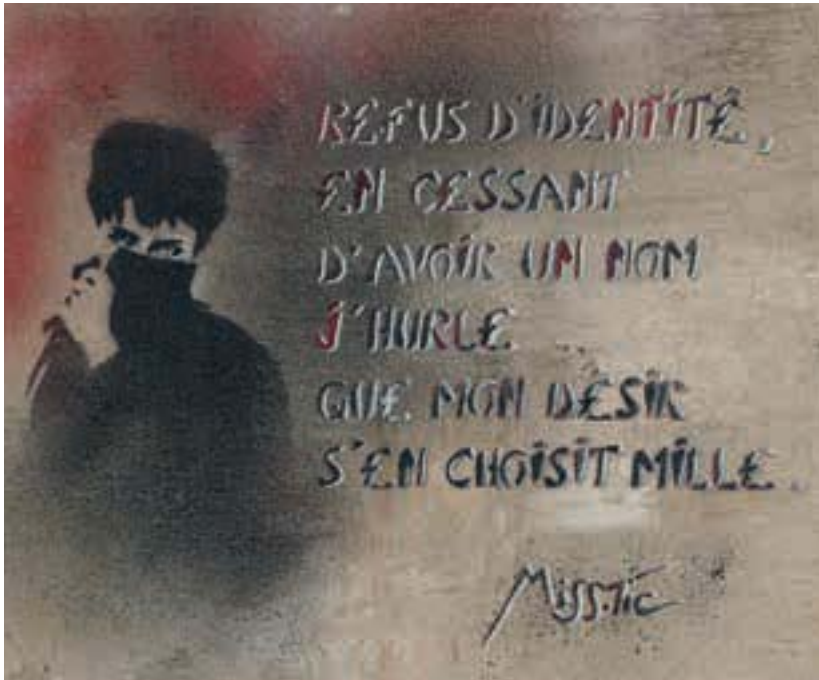 REFUS D'IDENTITÉ.
EN CESSANT
D'AVOIR UN NOM
J'HURLE
QUE MON DÉSIR
S'EN CHOISIT MILLE.
Miss.Tic